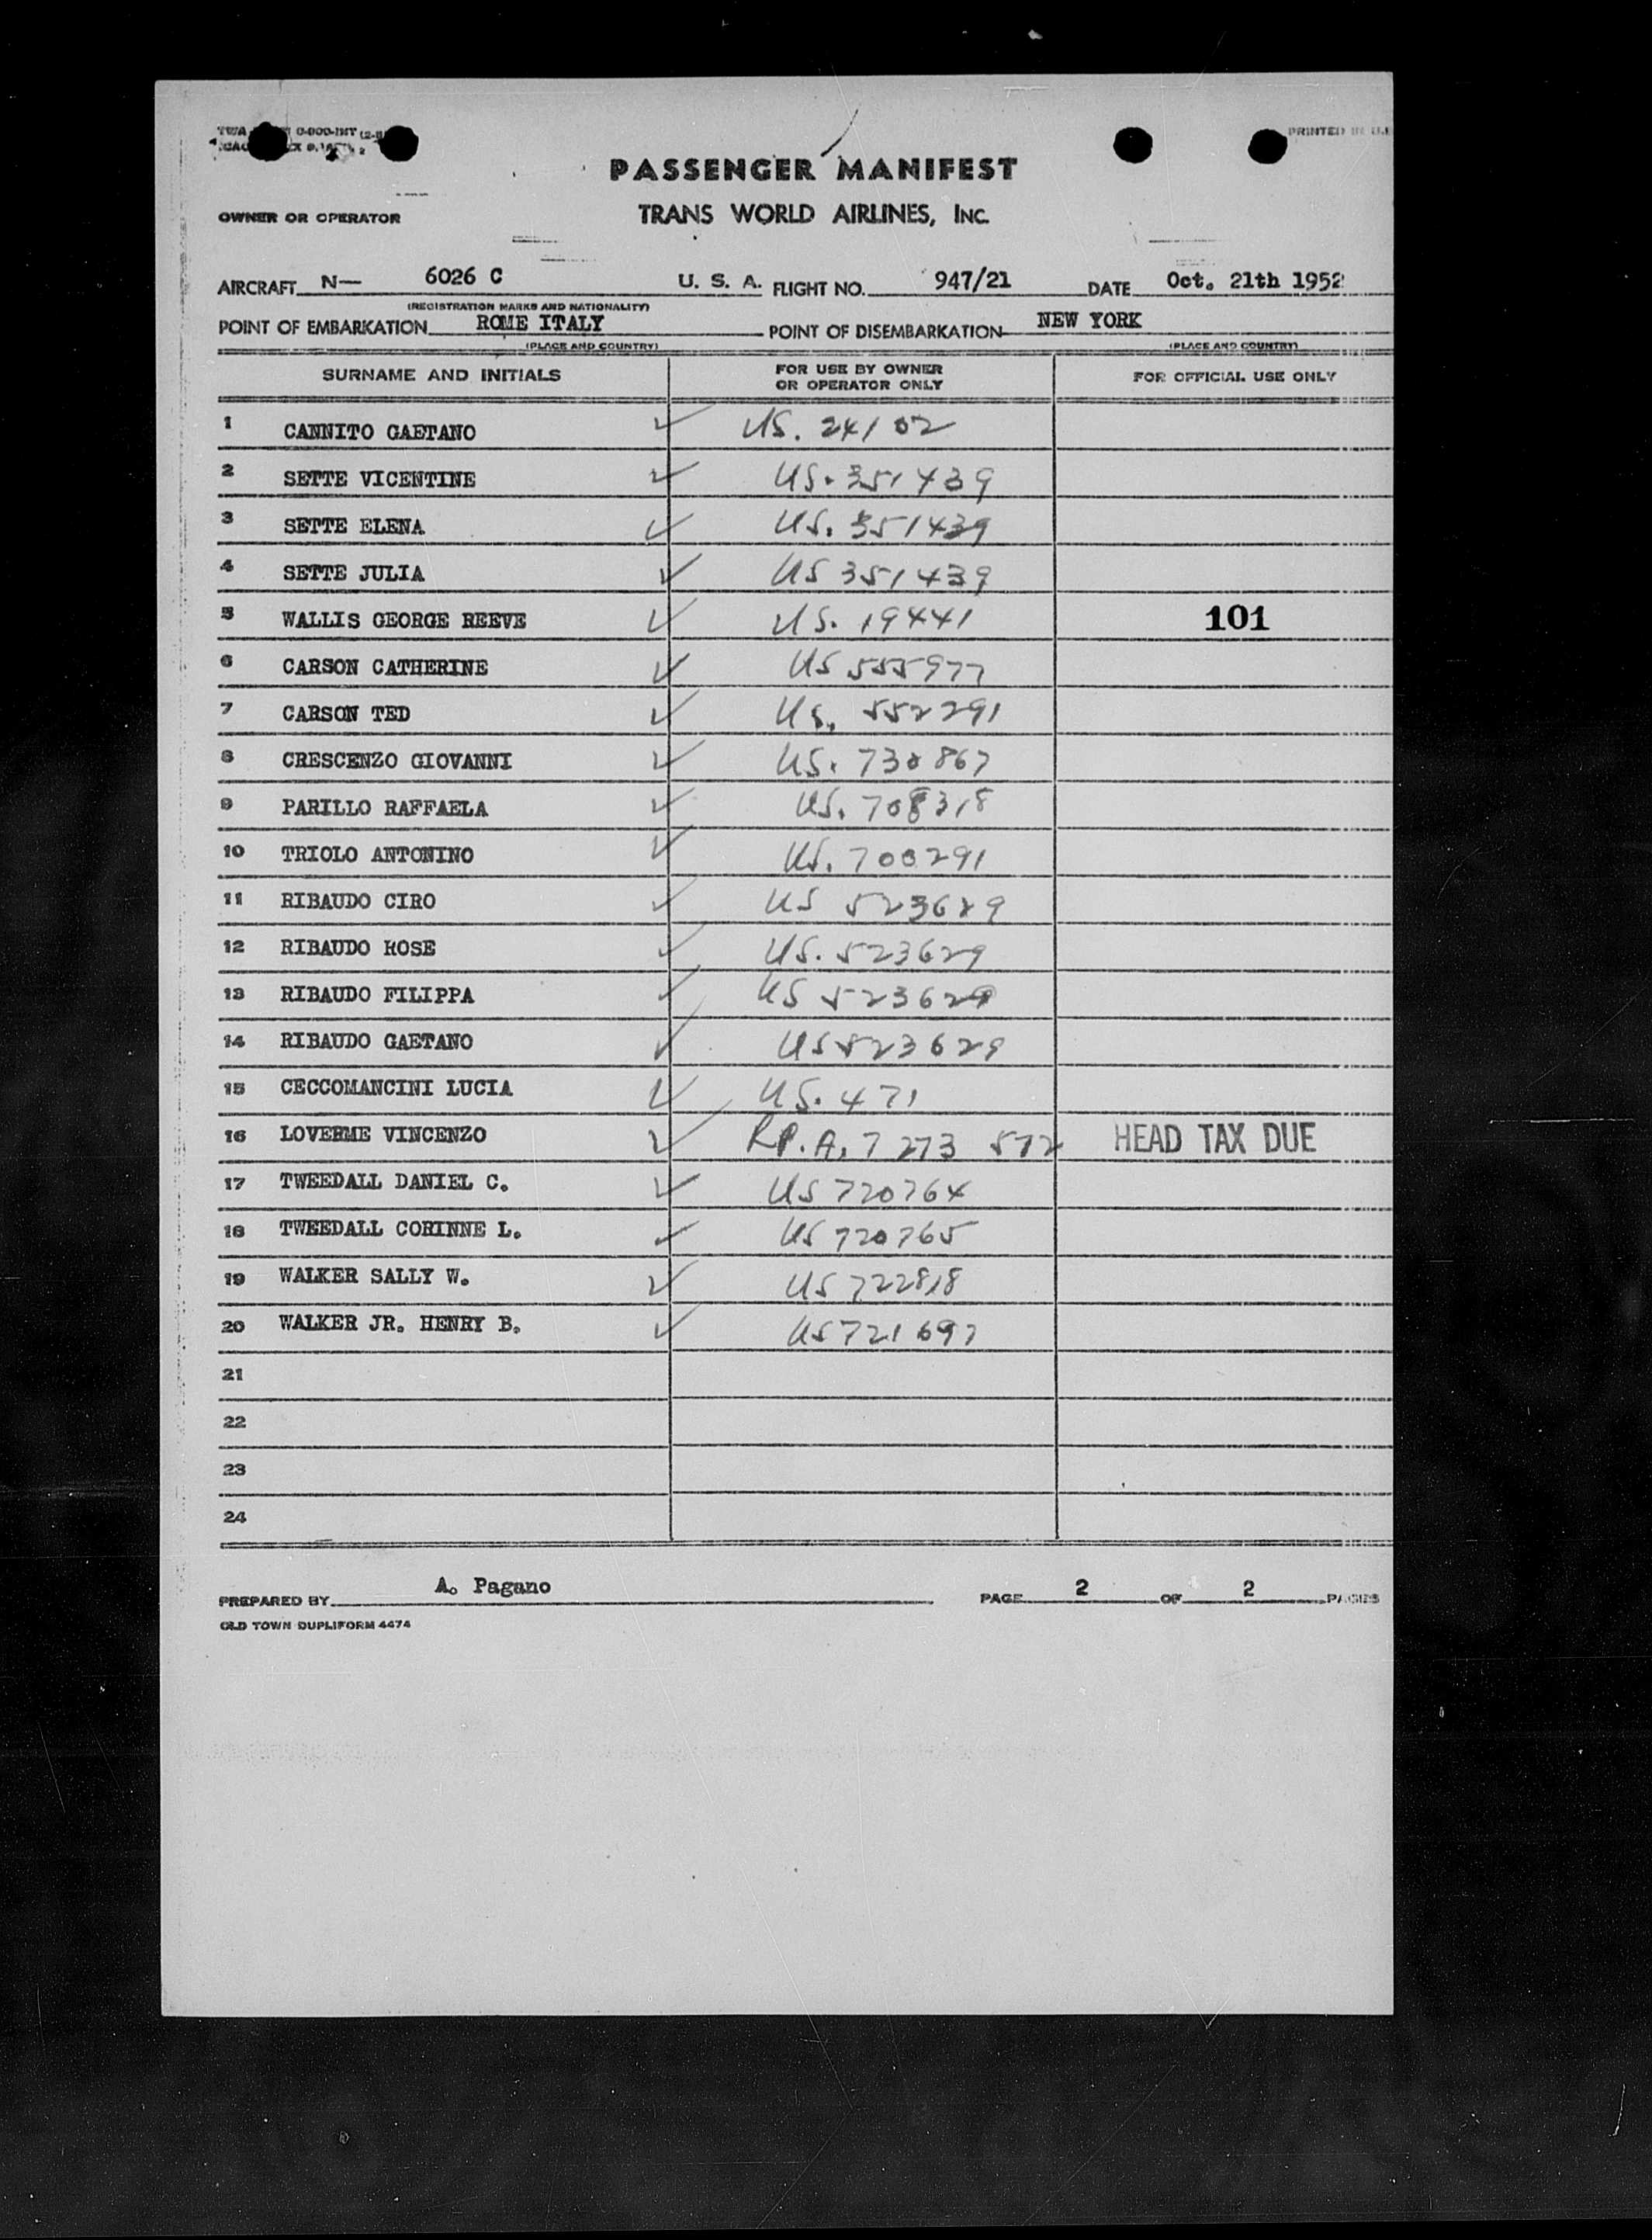 PRINTED IN U.
PASSENGER MANIFEST
OWNER OR OPERATOR TRANS WORLD AIRLINES, INC.
AIRCRAFT N— 6026 C U. S. A. FLIGHT NO. 947/21 DATE Oct. 21th 1952
(REGISTRATION MARKS AND NATIONALITY)
POINT OF EMBARKATION ROME ITALY POINT OF DISEMBARKATION NEW YORK
(PLACE AND COUNTRY) (PLACE AND COUNTRY)
SURNAME AND INITIALS FOR USE BY OWNER OR OPERATOR ONLY FOR OFFICIAL USE ONLY
1 CANNITO GAETANO ✓ US. 24102
2 SETTE VICENTINE ✓ US. 351439
3 SETTE ELENA ✓ US. 351439
4 SETTE JULIA ✓ US 351439
5 WALLIS GEORGE REEVE ✓ US. 19441 101
6 CARSON CATHERINE ✓ US 555977
7 CARSON TED ✓ US. 552291
8 CRESCENZO GIOVANNI ✓ US. 730867
9 PARILLO RAFFAELA ✓ US. 708318
10 TRIOLO ANTONINO ✓ US. 700291
11 RIBAUDO CIRO ✓ US 523629
12 RIBAUDO ROSE ✓ US. 523629
13 RIBAUDO FILIPPA ✓ US 523629
14 RIBAUDO GAETANO ✓ US 523629
15 CECCOMANCINI LUCIA ✓ US. 471
16 LOVERME VINCENZO ✓ RP. A. 7 273 572 HEAD TAX DUE
17 TWEEDALL DANIEL C. ✓ US 720764
18 TWEEDALL CORINNE L. ✓ US 720765
19 WALKER SALLY W. ✓ US 722818
20 WALKER JR. HENRY B. ✓ US 721697
21
22
23
24
PREPARED BY A. Pagano PAGE 2 OF 2 PAGES
OLD TOWN DUPLIFORM 4474